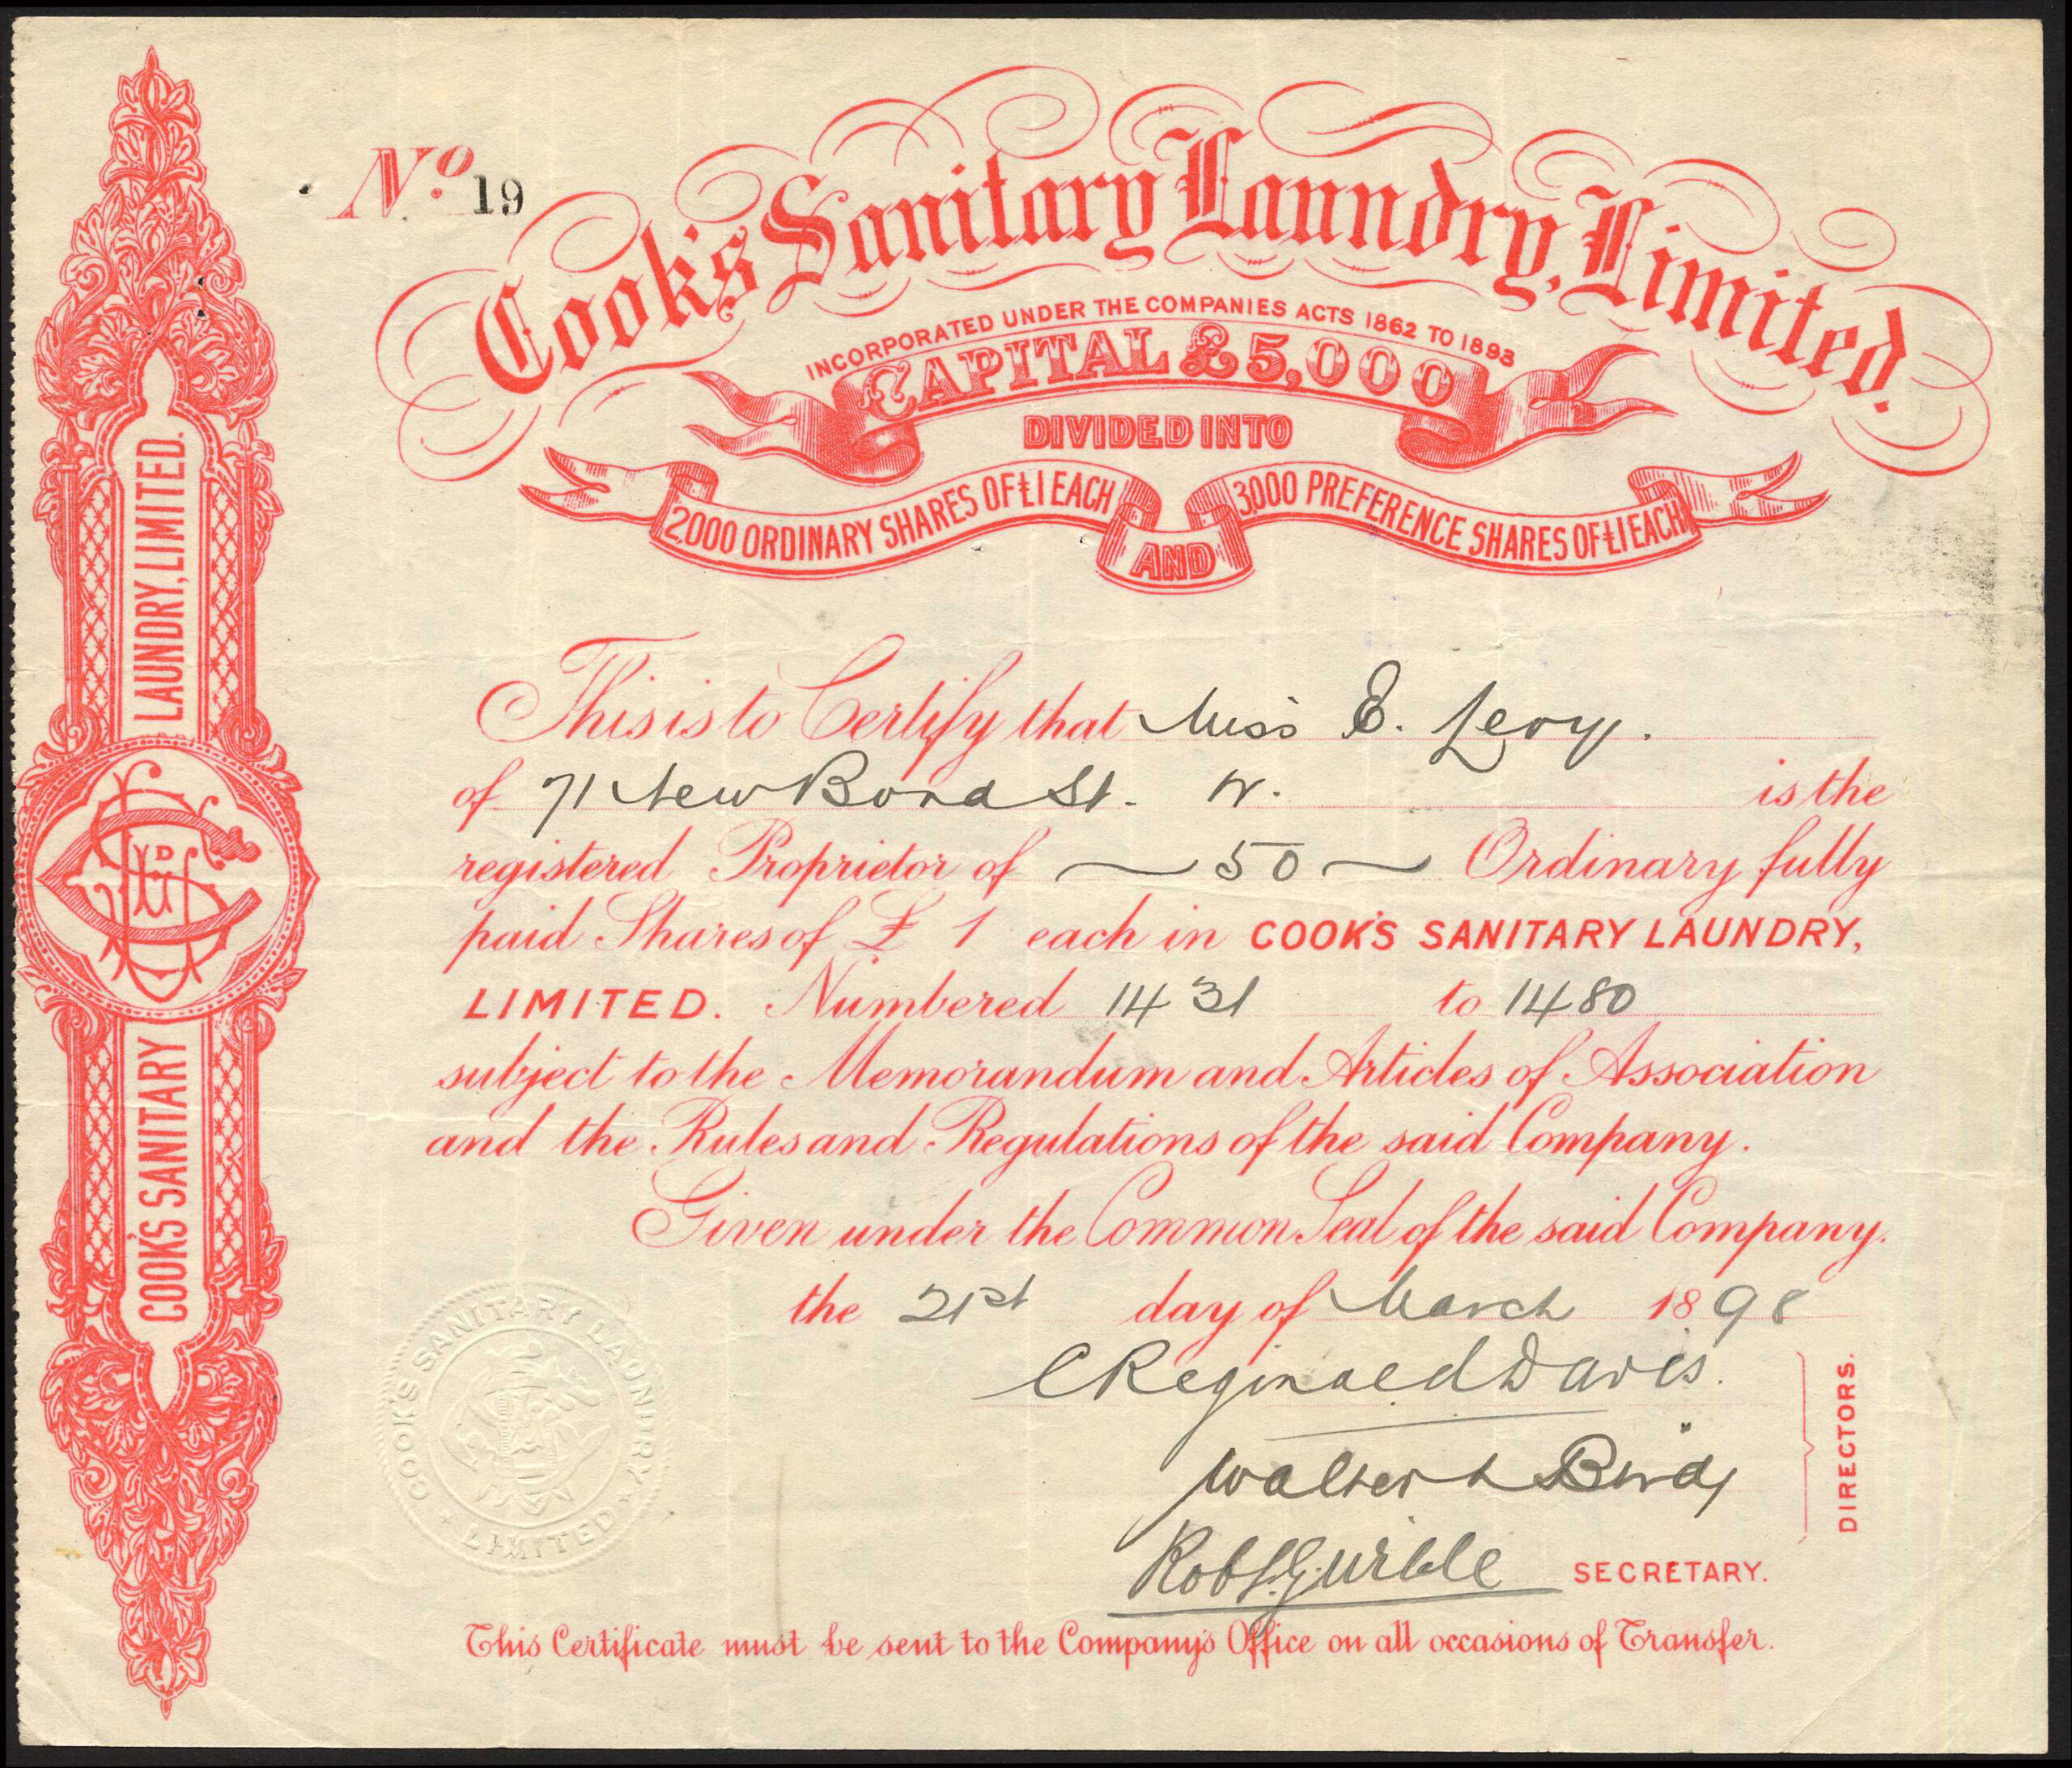 No. 19
Cook's Sanitary Laundry, Limited.
INCORPORATED UNDER THE COMPANIES ACTS 1862 TO 1893
CAPITAL £5,000
DIVIDED INTO
2,000 ORDINARY SHARES OF £1 EACH AND 3,000 PREFERENCE SHARES OF £1 EACH
This is to Certify that Miss E. Levy.
of 71 New Bond St. W. is the
registered Proprietor of ~ 50 ~ Ordinary fully
paid Shares of £ 1 each in COOK'S SANITARY LAUNDRY,
LIMITED. Numbered 1431 to 1480
subject to the Memorandum and Articles of Association
and the Rules and Regulations of the said Company.
Given under the Common Seal of the said Company.
the 21st day of March 1898
C Reginald Davis.
Walter Bird
DIRECTORS.
Robt. G. SECRETARY.
This Certificate must be sent to the Company's Office on all occasions of Transfer.
COOK'S SANITARY LAUNDRY, LIMITED.
COOK'S SANITARY LAUNDRY
LIMITED